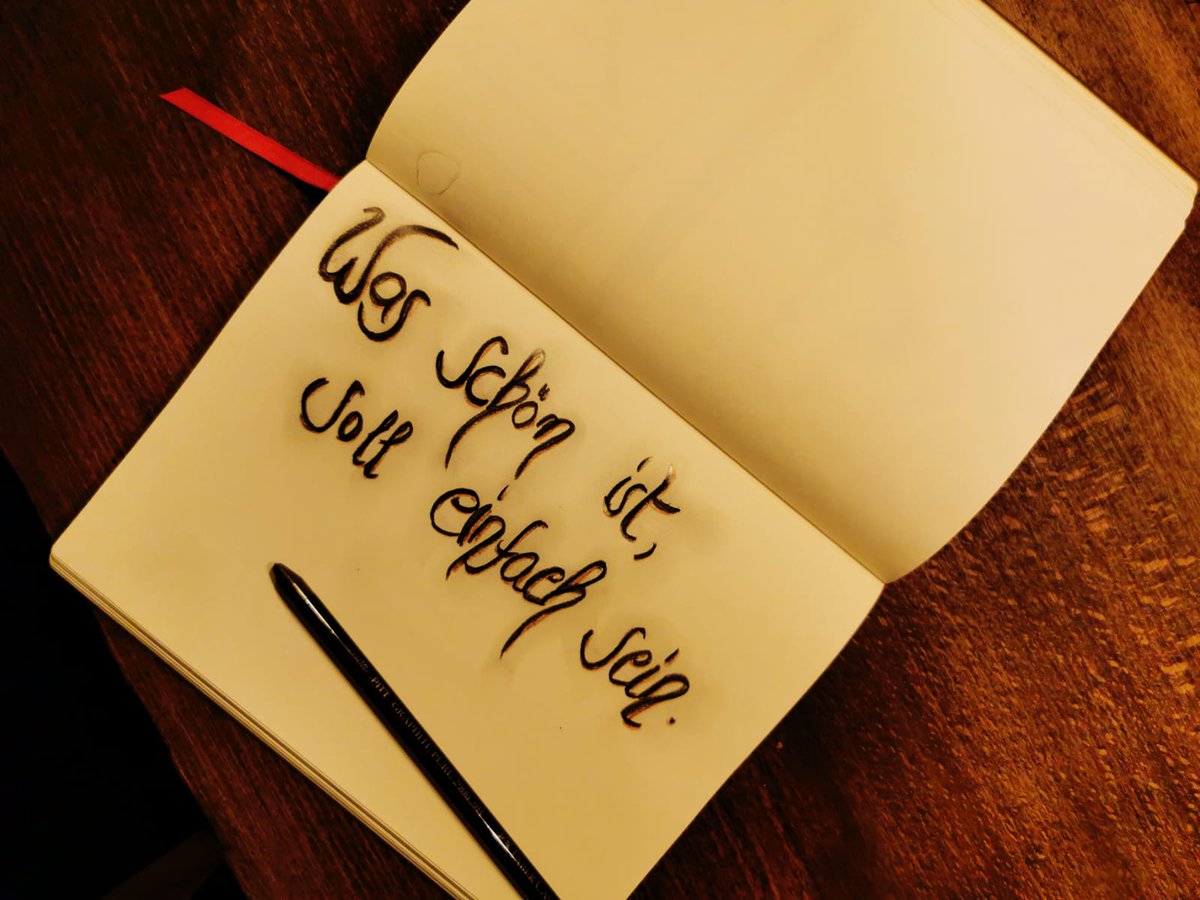 Was schön ist,
soll einfach sein.
PITT GRAPHITE PURE 2900